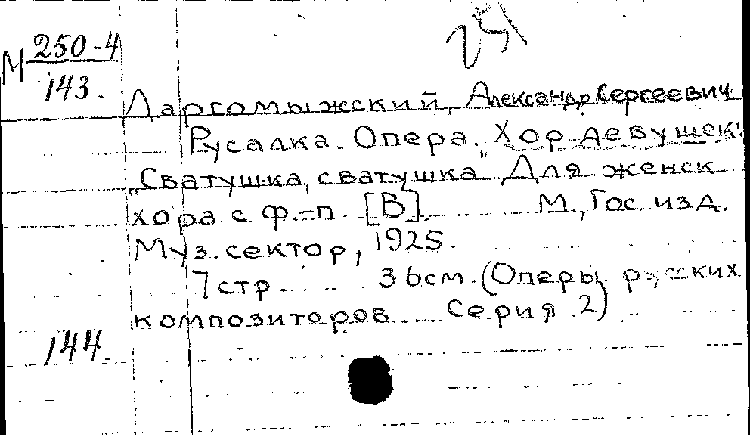 М 250-4
143.
Даргомыжский, Александр Сергеевич
Русалка. Опера. Хор девушек:
„Сватушка, сватушка". Для женск
хора с ф.-п. [В]. М., Гос. изд.
Муз. сектор, 1925.
7 стр. 36 см. (Оперы русских
композиторов. Серия 2)
144.